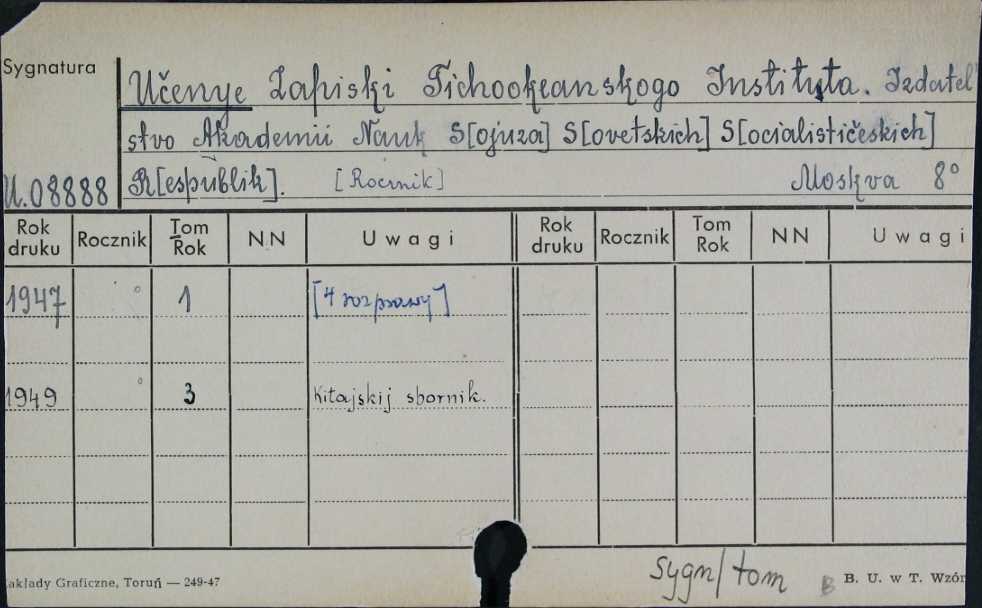 Sygnatura
Učenye Zapiski Tichookeanskogo Instituta. Izdatel'
stvo Akademii Nauk S[ojuza] S[ovetskich] S[ocialističeskich]
U.08888 R[espublik]. [Rocznik] Moskva 8°
Rok druku Rocznik Tom Rok NN Uwagi Rok druku Rocznik Tom Rok NN Uwagi
1947 1 [4 rozprawy]
1949 3 Kitajskij sbornik.
sygn/tom
akłady Graficzne, Toruń — 249-47 B B. U. w T. Wzór